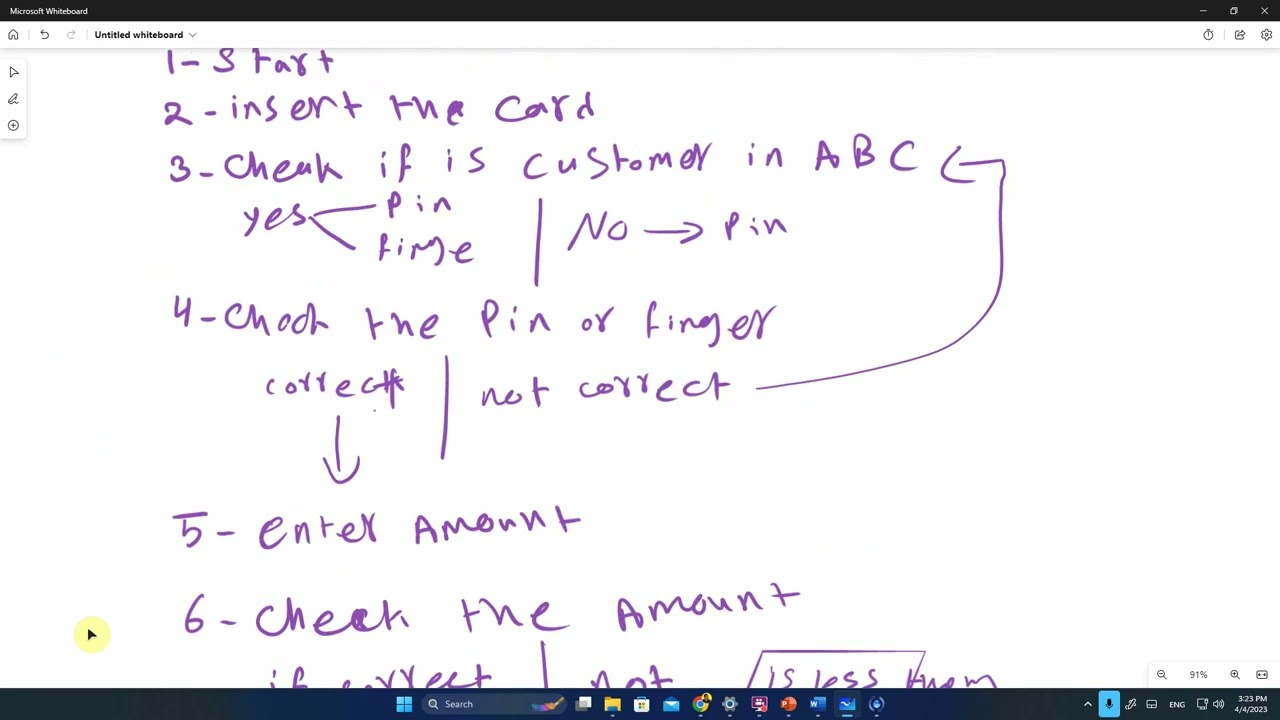 Microsoft Whiteboard
Untitled whiteboard
1- Start
2 - insert the Card
3- Cheak if is Customer in ABC
yes Pin No → Pin
finge
4- Chack the Pin or finger
correct not correct
5- enter Amount
6 - Cheack the Amount
if correct not is less them
91%
Search
ENG
3:23 PM
4/4/2023